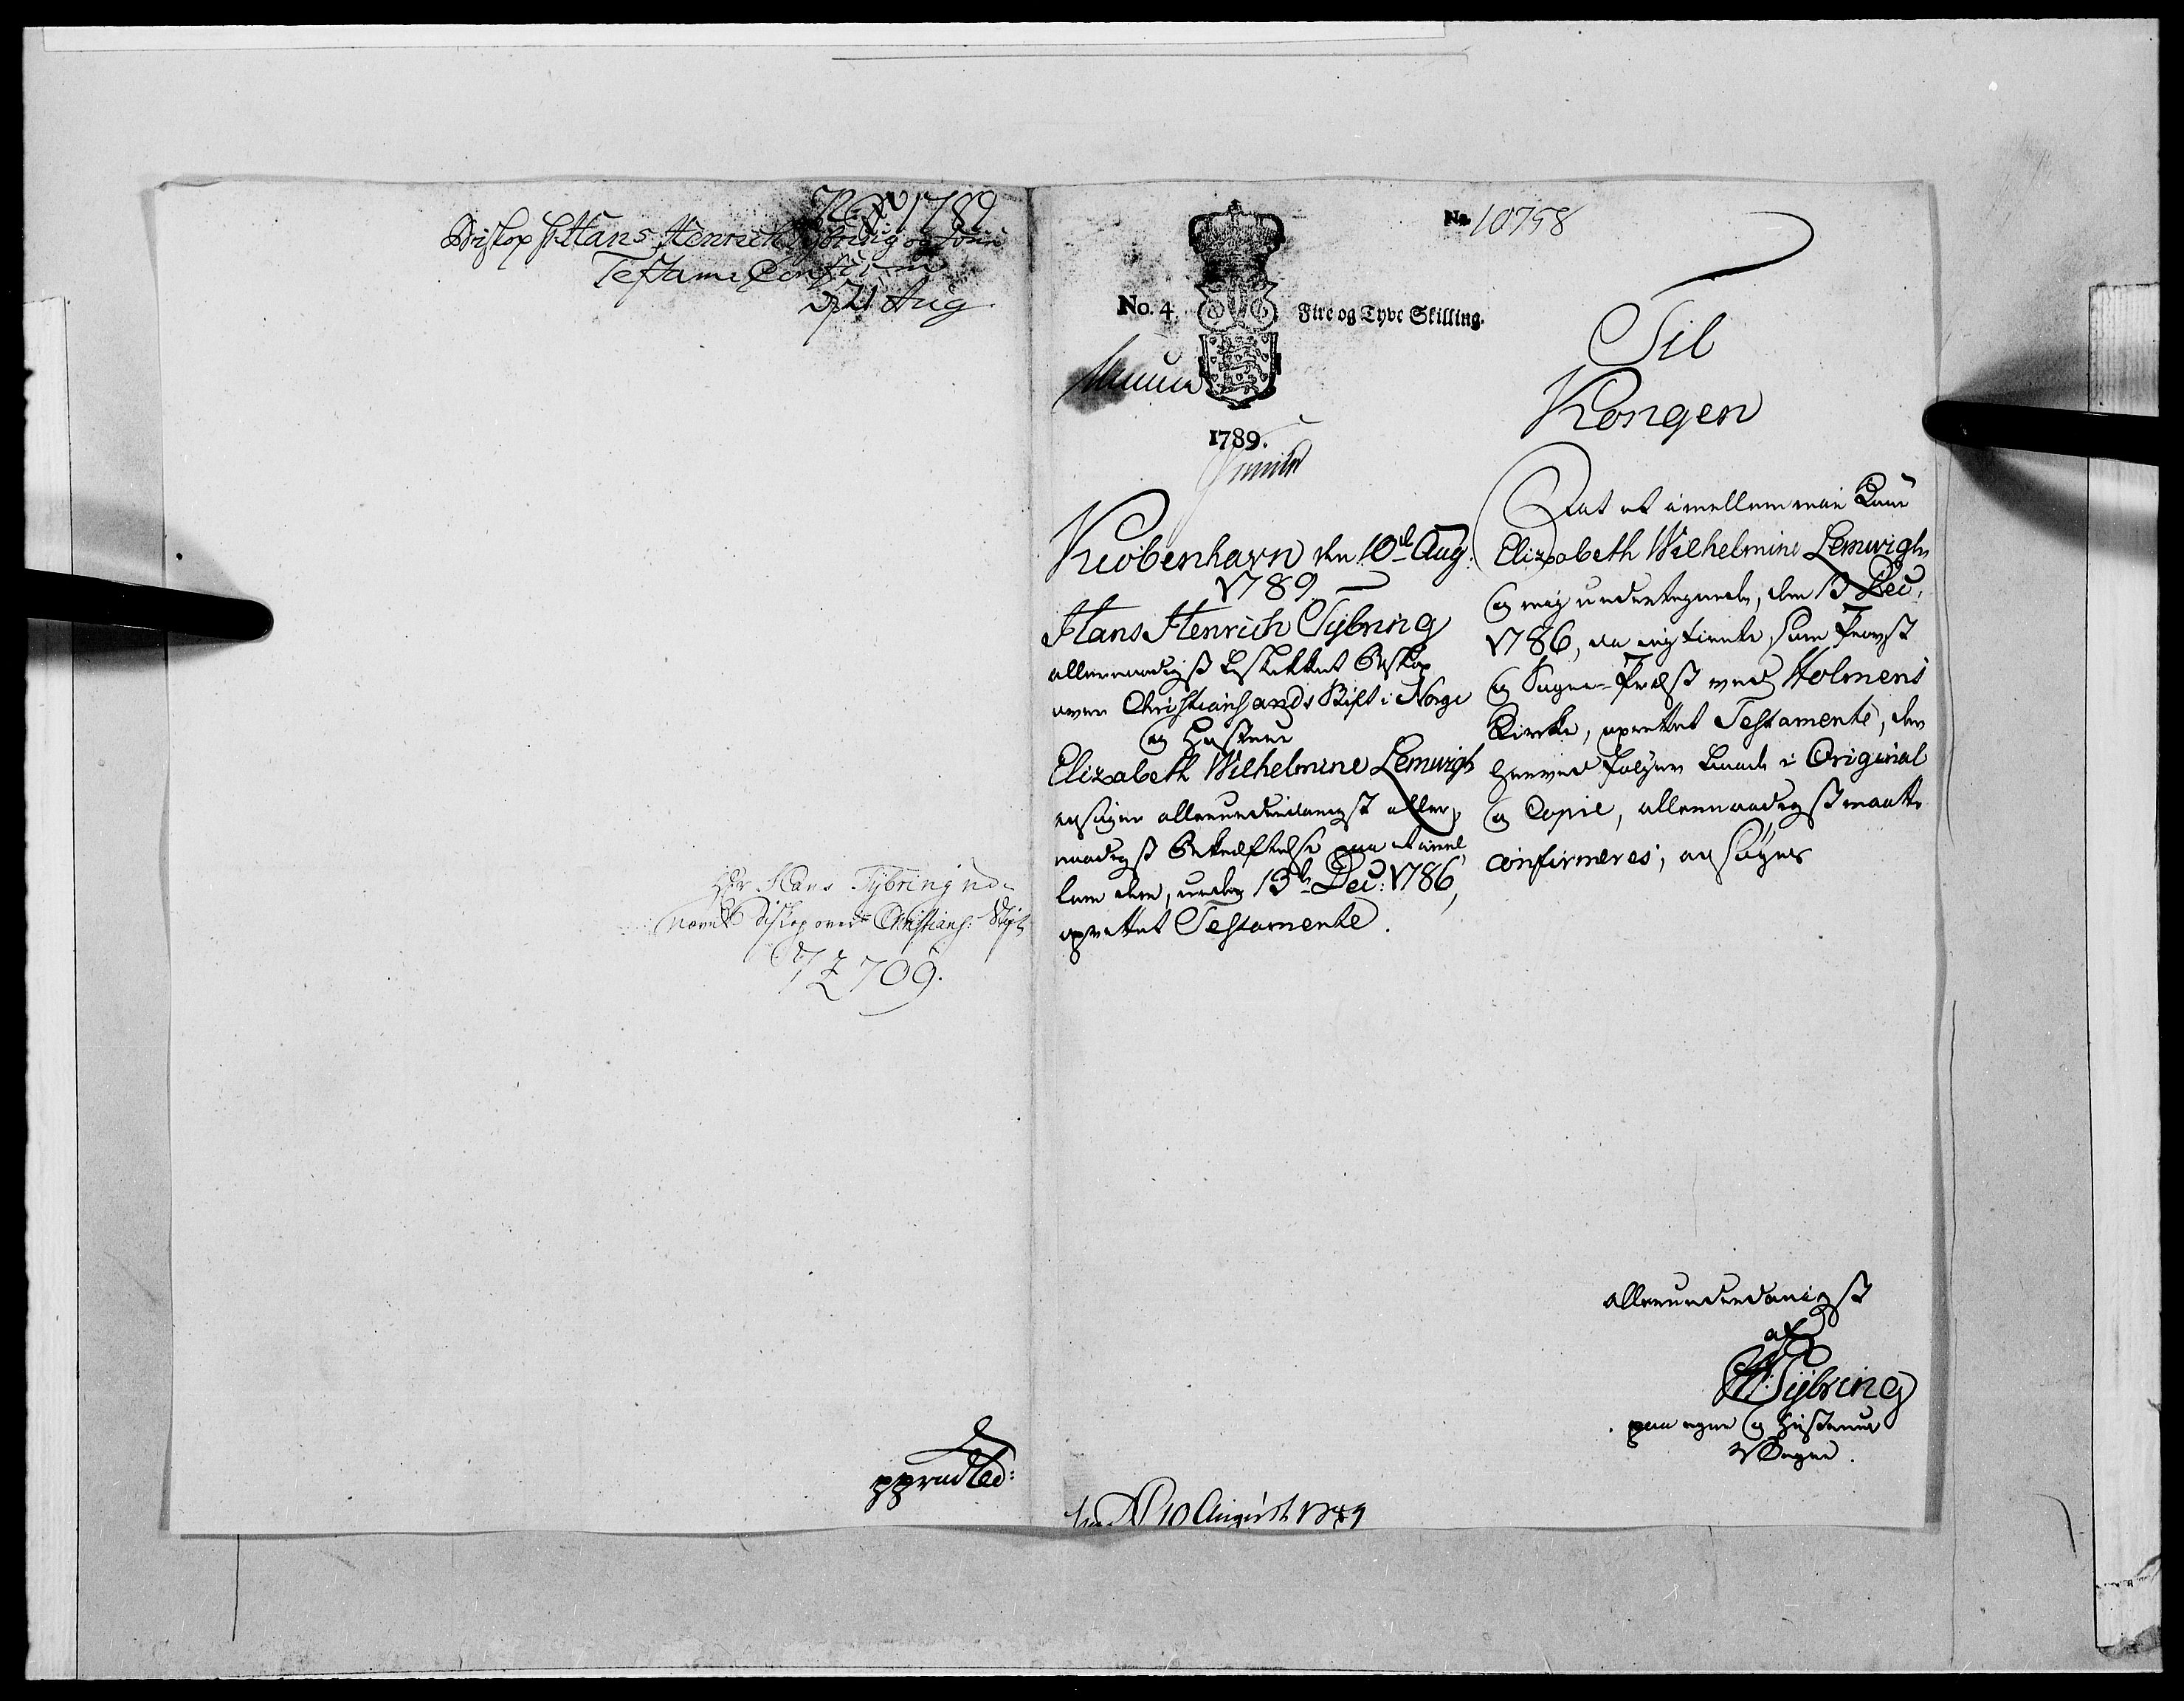 1789
Biskop H Hans Henrich Tybring og
Testam: Confirm
d 21 Aug
Hr Hans Tybring ud-
nævnt Biskop over Christians: Stift
7 Z 709.
No. 10758
No. 4. Fire og Tyve Skilling.
1789.
Kiøbenhavn den 10de Aug.
1789
Hans Henrich Tybring
allernaadigst beskikket Biskop
over Christiansands Stift i Norge
og Hustrue
Elizabeth Wilhelmine Lemvigh
ansøger allerunderdanigst aller-
naadigst Bekræftelse paa et imel-
lem dem, under 13de Dec: 1786,
oprettet Testamente.
Til
Kongen
At et imellem min Kone
Elizabeth Wilhelmine Lemvigh
og mig undertegnede, den 13 Dec.
1786, da jeg tiente som Provst
og Sogne-Præst ved Holmens
Kirke, oprettet Testamente, der
herved følger baade i Original
og Copie, allernaadigst maatte
confirmeres, ansøges
allerunderdanigst
af
HH Tybring
paa egne og Hustrues
Vegne.
10 August 1789